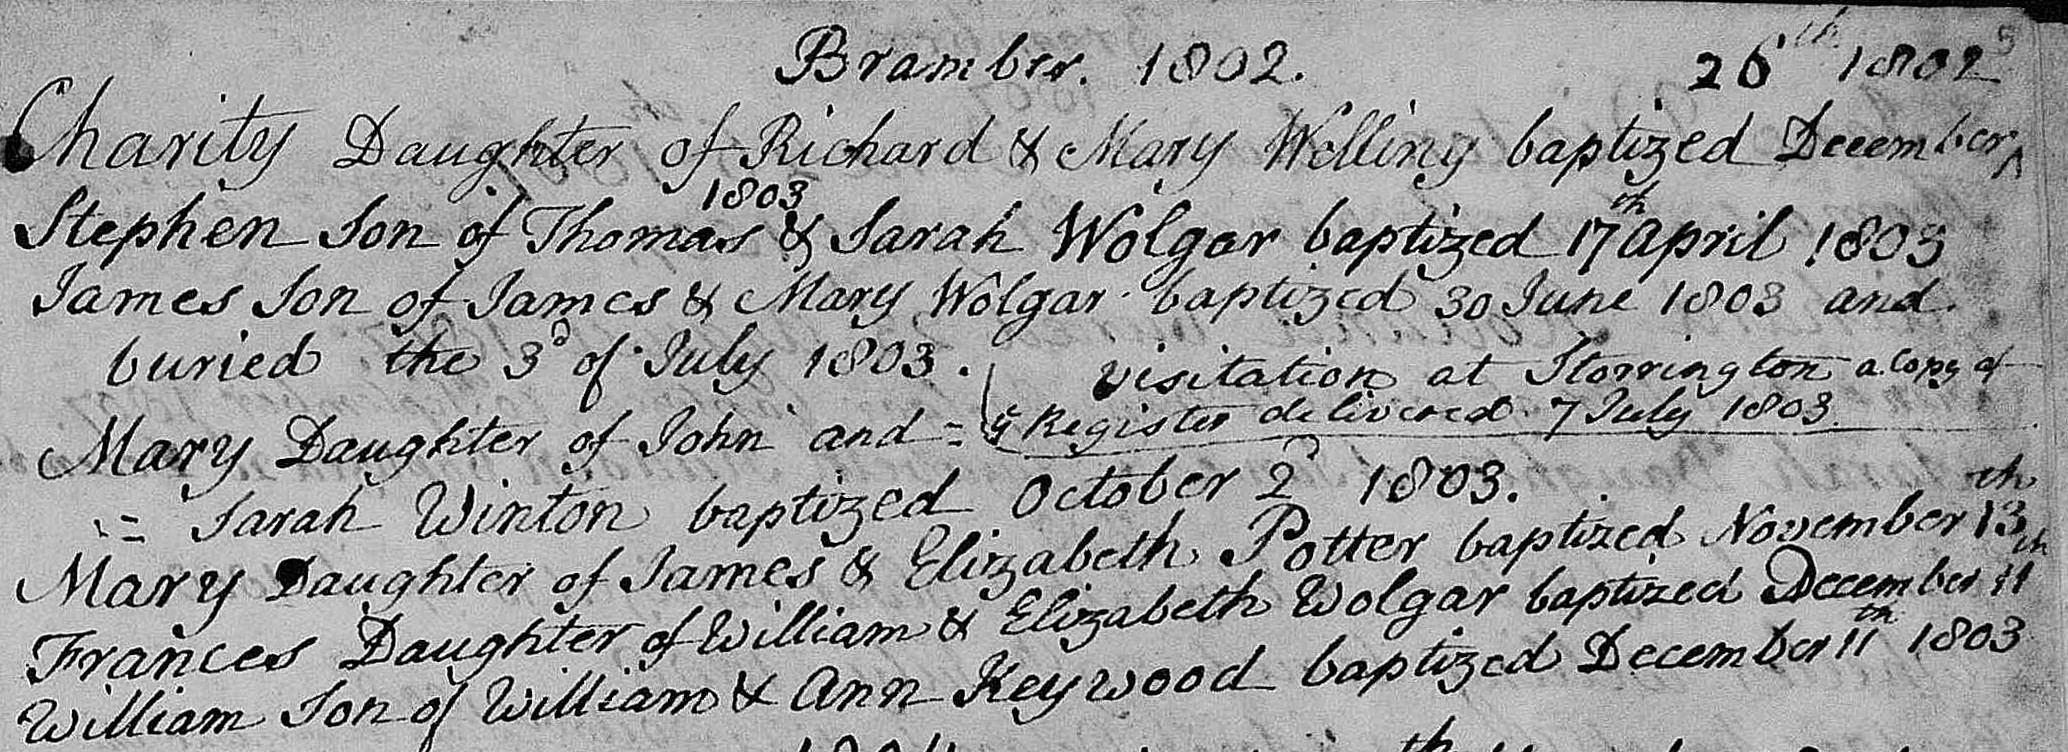 Bramber. 1802.
26th 1802
Charity Daughter of Richard & Mary Welling baptized December ^
1803
Stephen Son of Thomas & Sarah Wolgar baptized 17th April 1803
James Son of James & Mary Wolgar baptized 30 June 1803 and
buried the 3d of July 1803.
Visitation at Storrington a Copy of
Mary Daughter of John and =
Register delivered 7 July 1803.
= Sarah Winton baptized October 2d 1803.
Mary Daughter of James & Elizabeth Potter baptized November 13th
Frances Daughter of William & Elizabeth Wolgar baptized December 11th
William Son of William & Ann Keywood baptized December 11th 1803